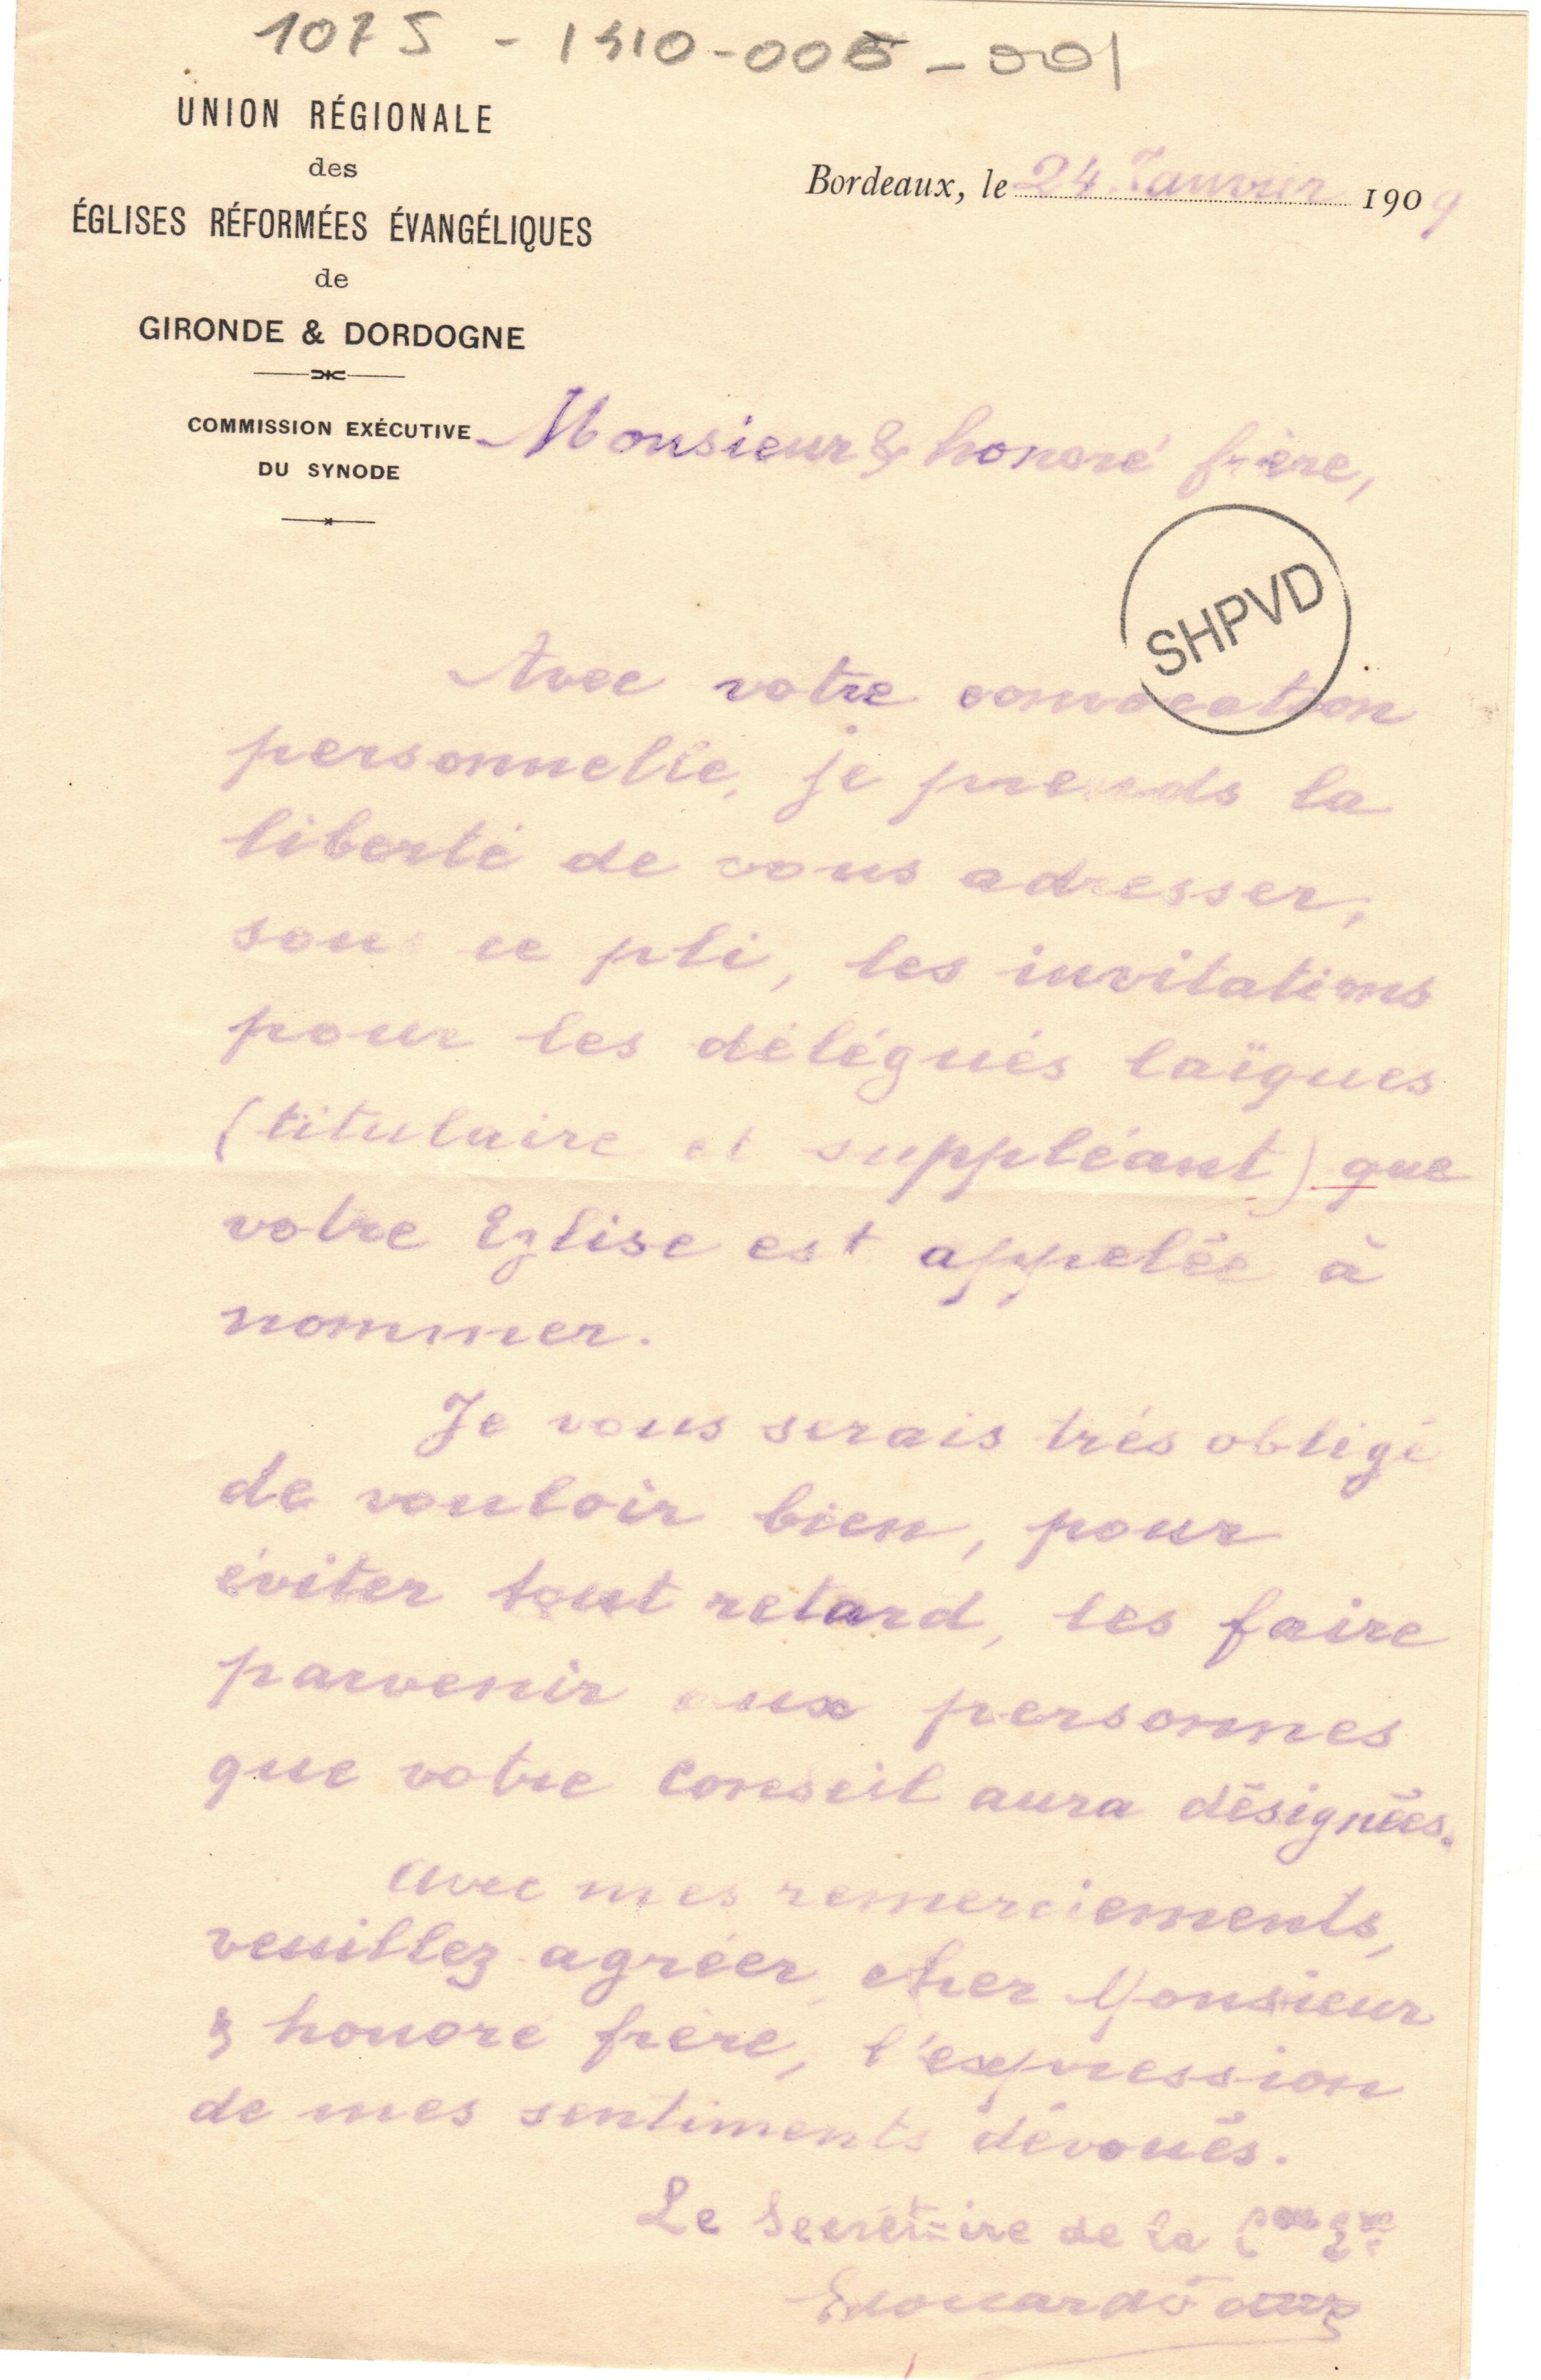 107S - 1910-005-001
UNION RÉGIONALE
des
ÉGLISES RÉFORMÉES ÉVANGÉLIQUES
de
GIRONDE & DORDOGNE
COMMISSION EXÉCUTIVE
DU SYNODE
Bordeaux, le 24 Janvier 1909
Monsieur & honoré frère,
SHPVD
Avec votre convocation
personnelle, je prends la
liberté de vous adresser,
sous ce pli, les invitations
pour les délégués laïques
(titulaire et suppléant) que
votre Eglise est appelée à
nommer.
Je vous serais très obligé
de vouloir bien, pour
éviter tout retard, les faire
parvenir aux personnes
que votre Conseil aura désignées.
Avec mes remerciements,
veuillez agréer, cher Monsieur
& honoré frère, l'expression
de mes sentiments dévoués.
Le Secrétaire de la
Edouard